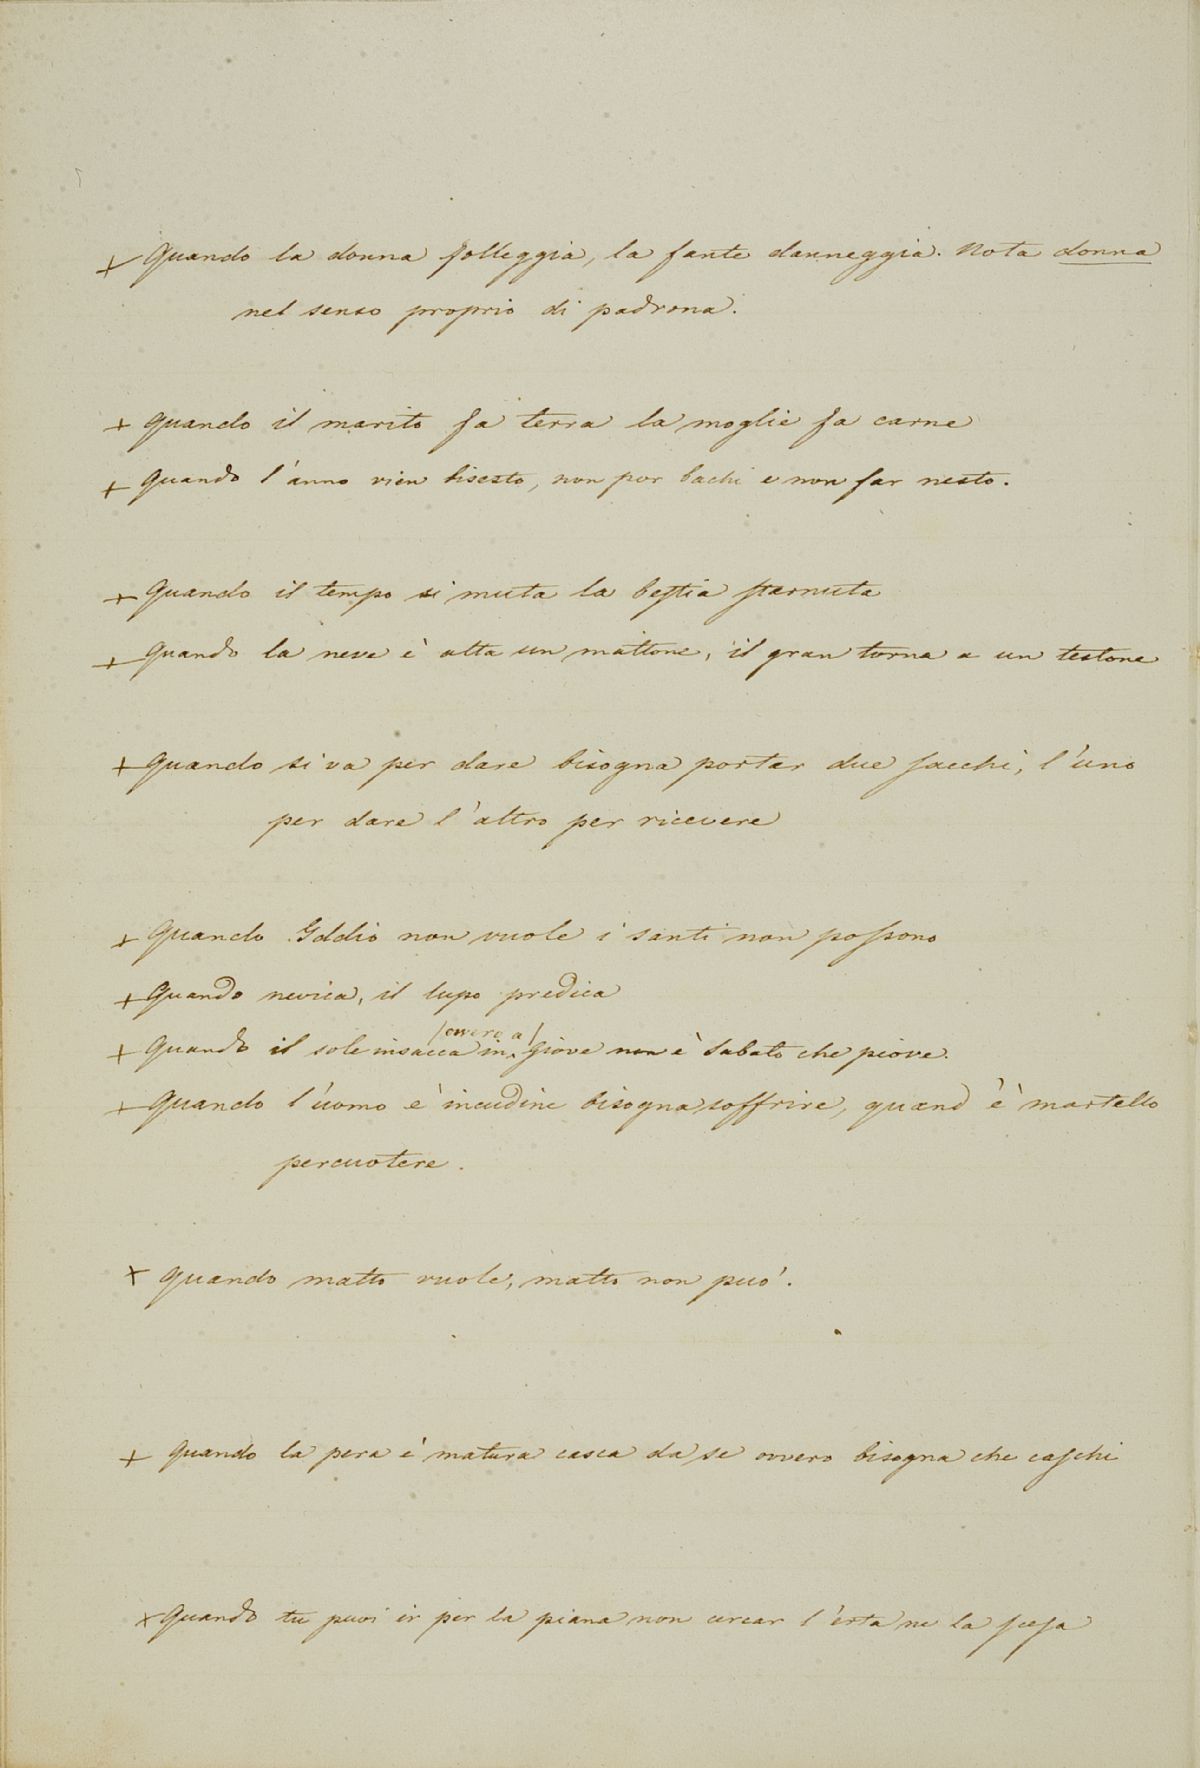 + Quando la donna folleggia, la fante danneggia. Nota donna
nel senso proprio di padrona.
+ Quando il marito fa terra la moglie fa carne
+ Quando l'anno vien bisesto, non por bachi e non far nesto.
+ Quando il tempo si muta la bestia starnuta
+ Quando la neve è alta un mattone, il gran torna a un testone
+ Quando si va per dare bisogna portar due sacchi, l'uno
per dare l'altro per ricevere
+ Quando Iddio non vuole i santi non possono
+ Quando nevica, il lupo predica
/ovvero a/
+ Quando il sole insacca in Giove non è Sabato che piove.
+ Quando l'uomo è incudine bisogna soffrire, quand' è martello
percuotere.
+ Quando matto vuole, matto non può.
+ Quando la pera è matura casca da se ovvero bisogna che caschi
+ Quando tu puoi ir per la piana non cercar l'erta ne la scesa